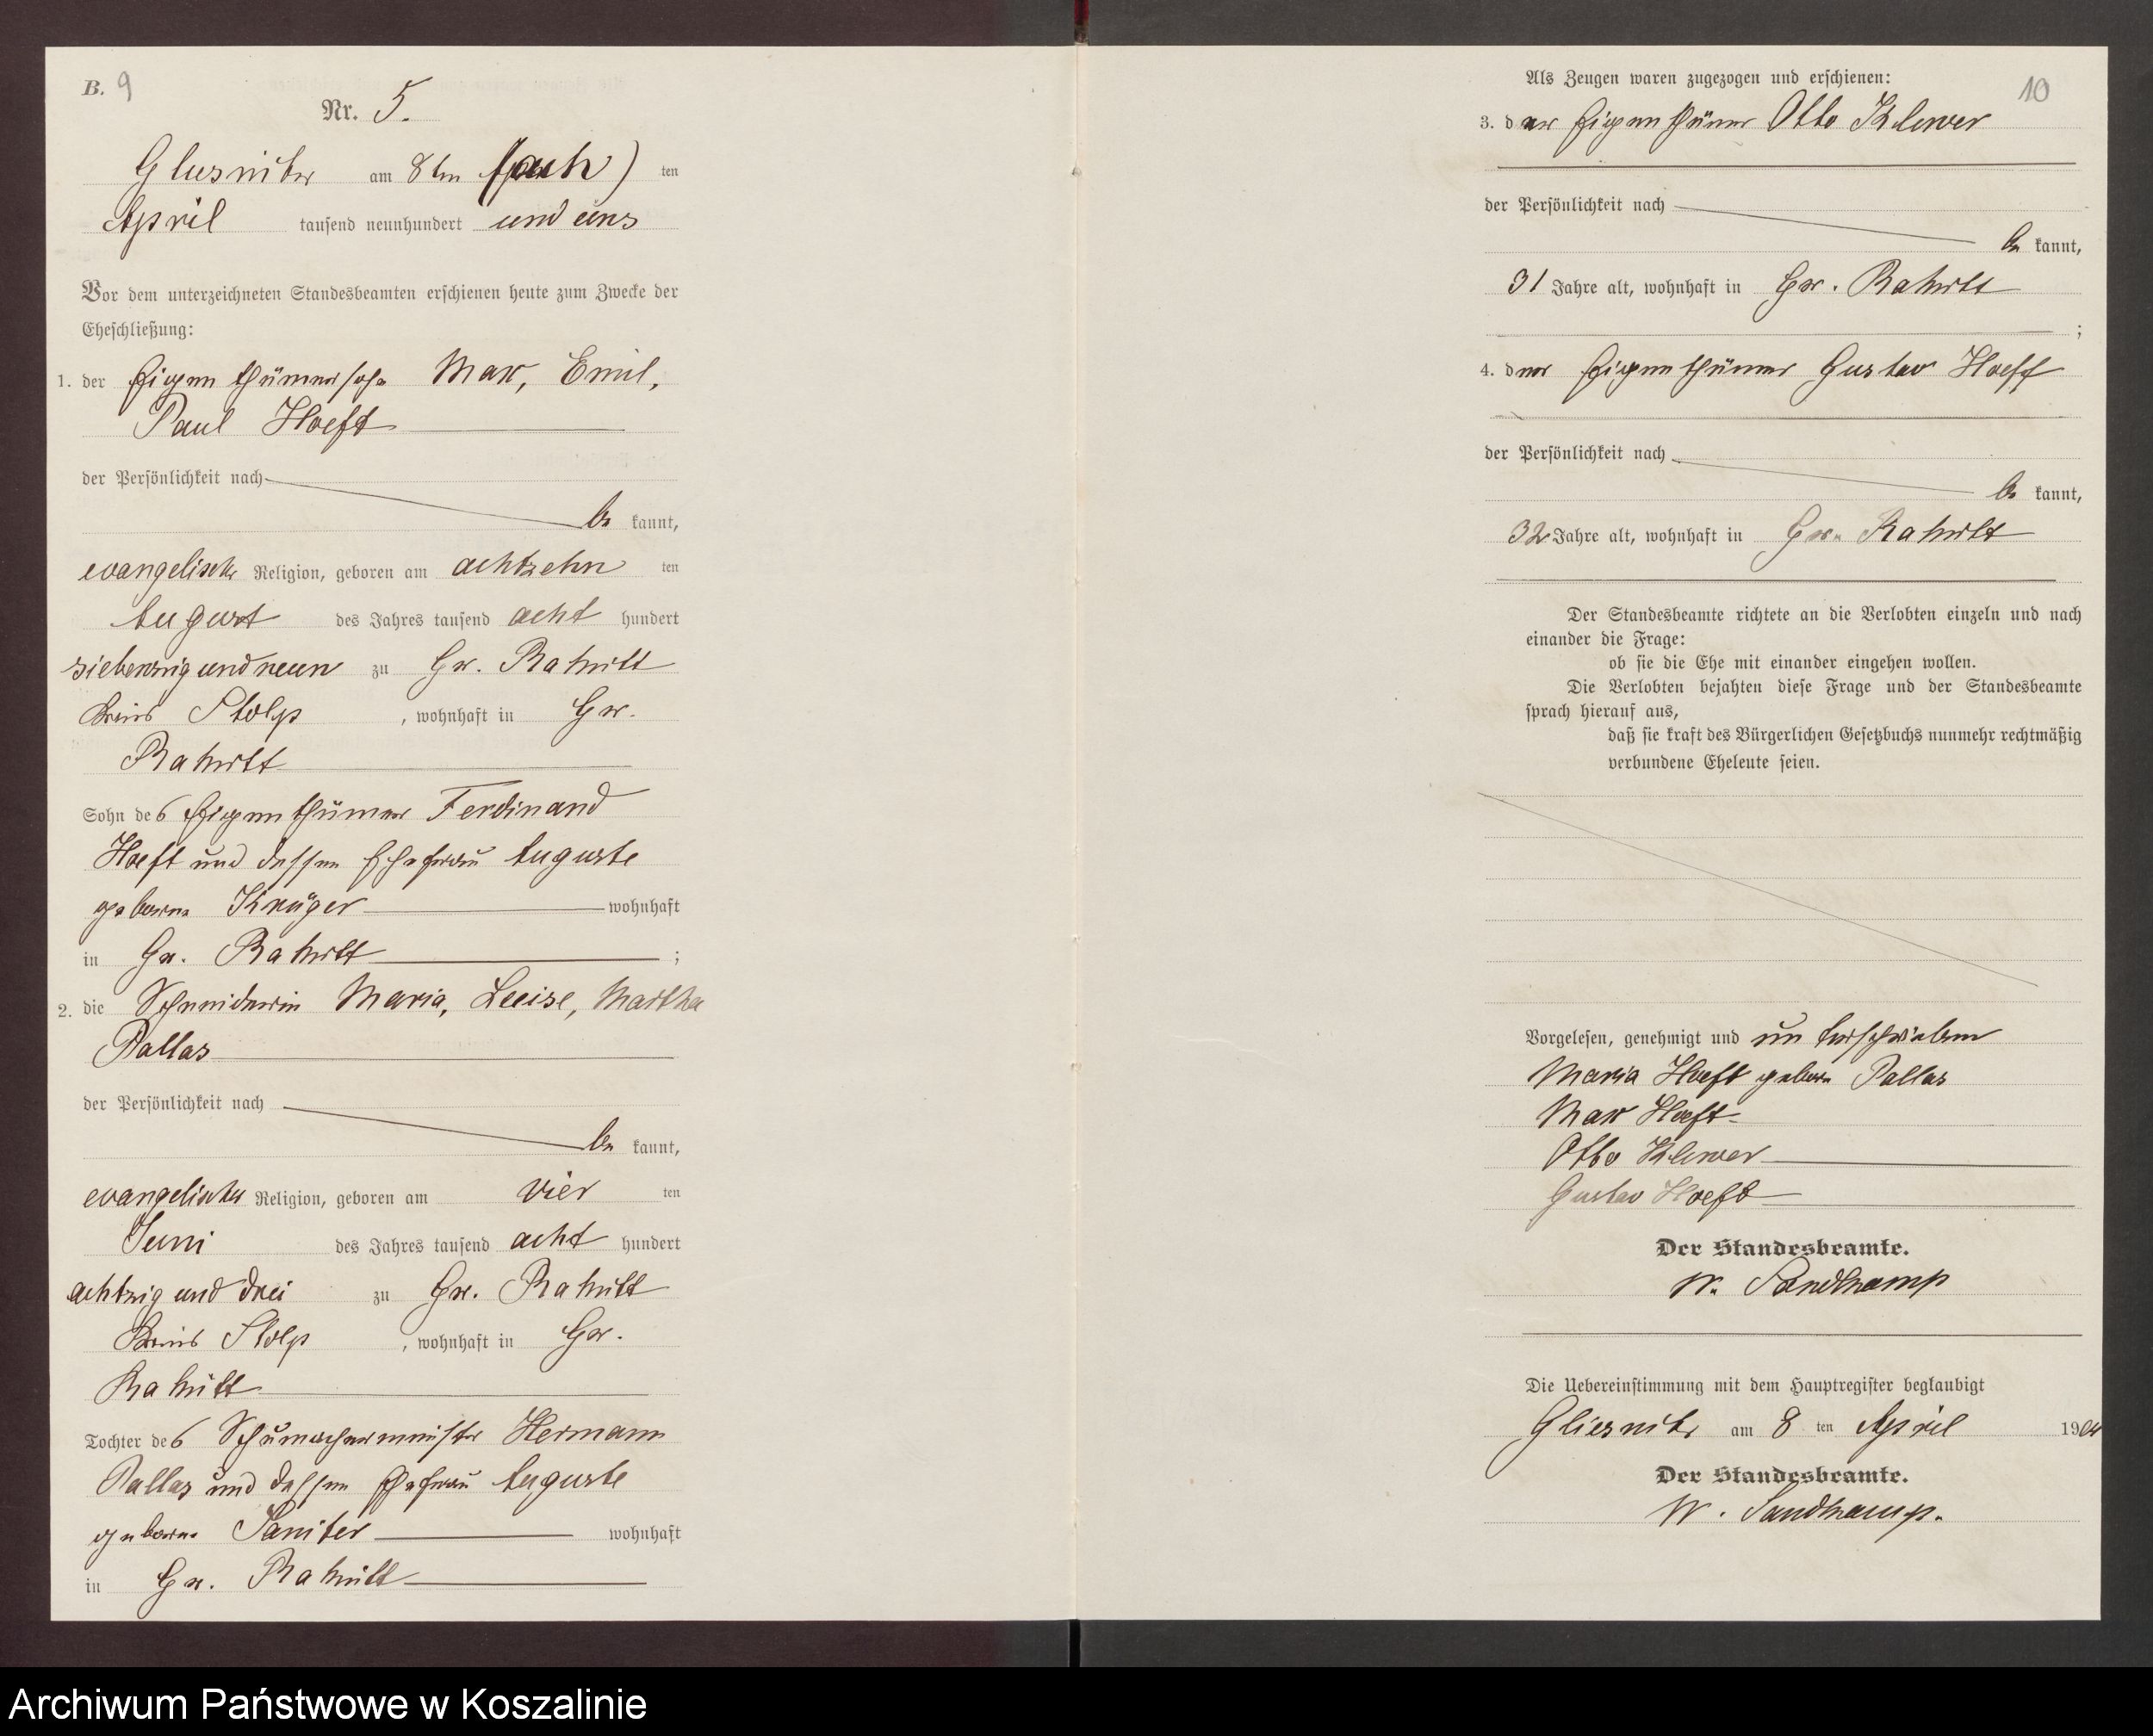 B. 9
Nr. 5.
Gliesnitz am 8ten (acht) ten
April tausend neunhundert und eins
Vor dem unterzeichneten Standesbeamten erschienen heute zum Zwecke der
Eheschließung:
1. der Eigenthümersohn Max, Emil,
Paul Hoeft
der Persönlichkeit nach
be kannt,
evangelischer Religion, geboren am achtzehn ten
August des Jahres tausend acht hundert
siebenzig und neun zu Gr. Rakitt
Kreis Stolp , wohnhaft in Gr.
Rakitt
Sohn des Eigenthümer Ferdinand
Hoeft und dessen Ehefrau Auguste
geborne Krüger wohnhaft
in Gr. Rakitt ;
2. die Schneiderin Maria, Luise, Martha
Pallas
der Persönlichkeit nach
be kannt,
evangelischer Religion, geboren am vier ten
Juni des Jahres tausend acht hundert
achtzig und drei zu Gr. Rakitt
Kreis Stolp , wohnhaft in Gr.
Rakitt
Tochter des Schumachermeister Hermann
Pallas und dessen Ehefrau Auguste
geborne Saniter wohnhaft
in Gr. Rakitt
10
Als Zeugen waren zugezogen und erschienen:
3. der Eigenthümer Otto Klewer
der Persönlichkeit nach
be kannt,
31 Jahre alt, wohnhaft in Gr. Rakitt
;
4. der Eigenthümer Gustav Hoeft
der Persönlichkeit nach
be kannt,
32 Jahre alt, wohnhaft in Gr. Rakitt
Der Standesbeamte richtete an die Verlobten einzeln und nach
einander die Frage:
ob sie die Ehe mit einander eingehen wollen.
Die Verlobten bejahten diese Frage und der Standesbeamte
sprach hierauf aus,
daß sie kraft des Bürgerlichen Gesetzbuchs nunmehr rechtmäßig
verbundene Eheleute seien.
Vorgelesen, genehmigt und unterschrieben
Maria Hoeft geborne Pallas
Max Hoeft
Otto Klewer
Gustav Hoeft
Der Standesbeamte.
W. Sandkamp
Die Uebereinstimmung mit dem Hauptregister beglaubigt
Gliesnitz am 8 ten April 1901
Der Standesbeamte.
W. Sandkamp.
Archiwum Państwowe w Koszalinie